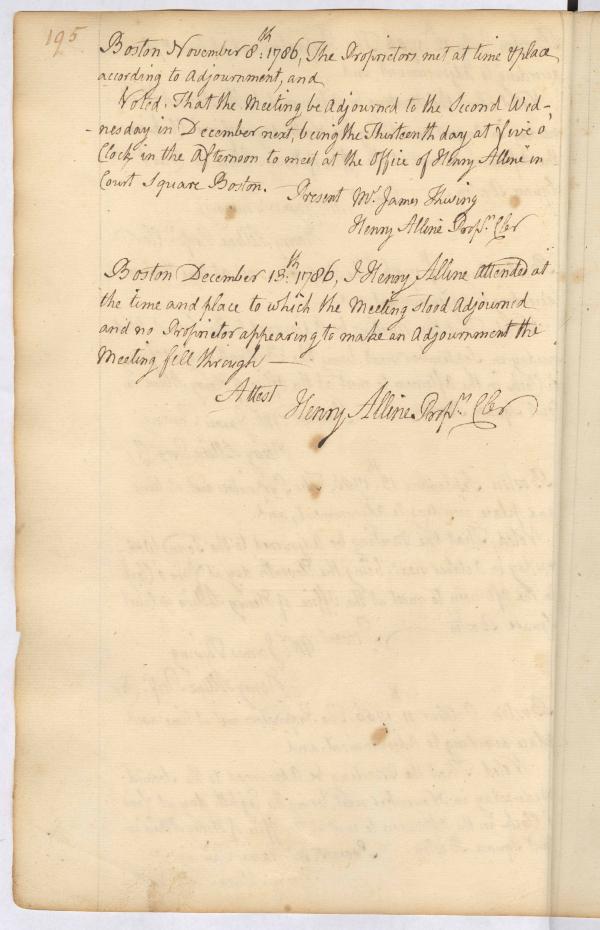 195
Boston November 8th: 1786, The Proprietors met at time & place
according to Adjournment, and
Voted. That the Meeting be Adjourned to the Second Wed-
nesday in December next, being the Thirteenth day at five o'
Clock in the Afternoon to meet at the Office of Henry Alline in
Court Square Boston.
Present Mr. James Thwing
Henry Alline Propr. Cler
Boston December 13th: 1786, I Henry Alline attended at
the time and place to which the Meeting stood Adjourned
and no Proprietor appearing to make an Adjournment the
Meeting fell through —
Attest
Henry Alline Proprs. Cler